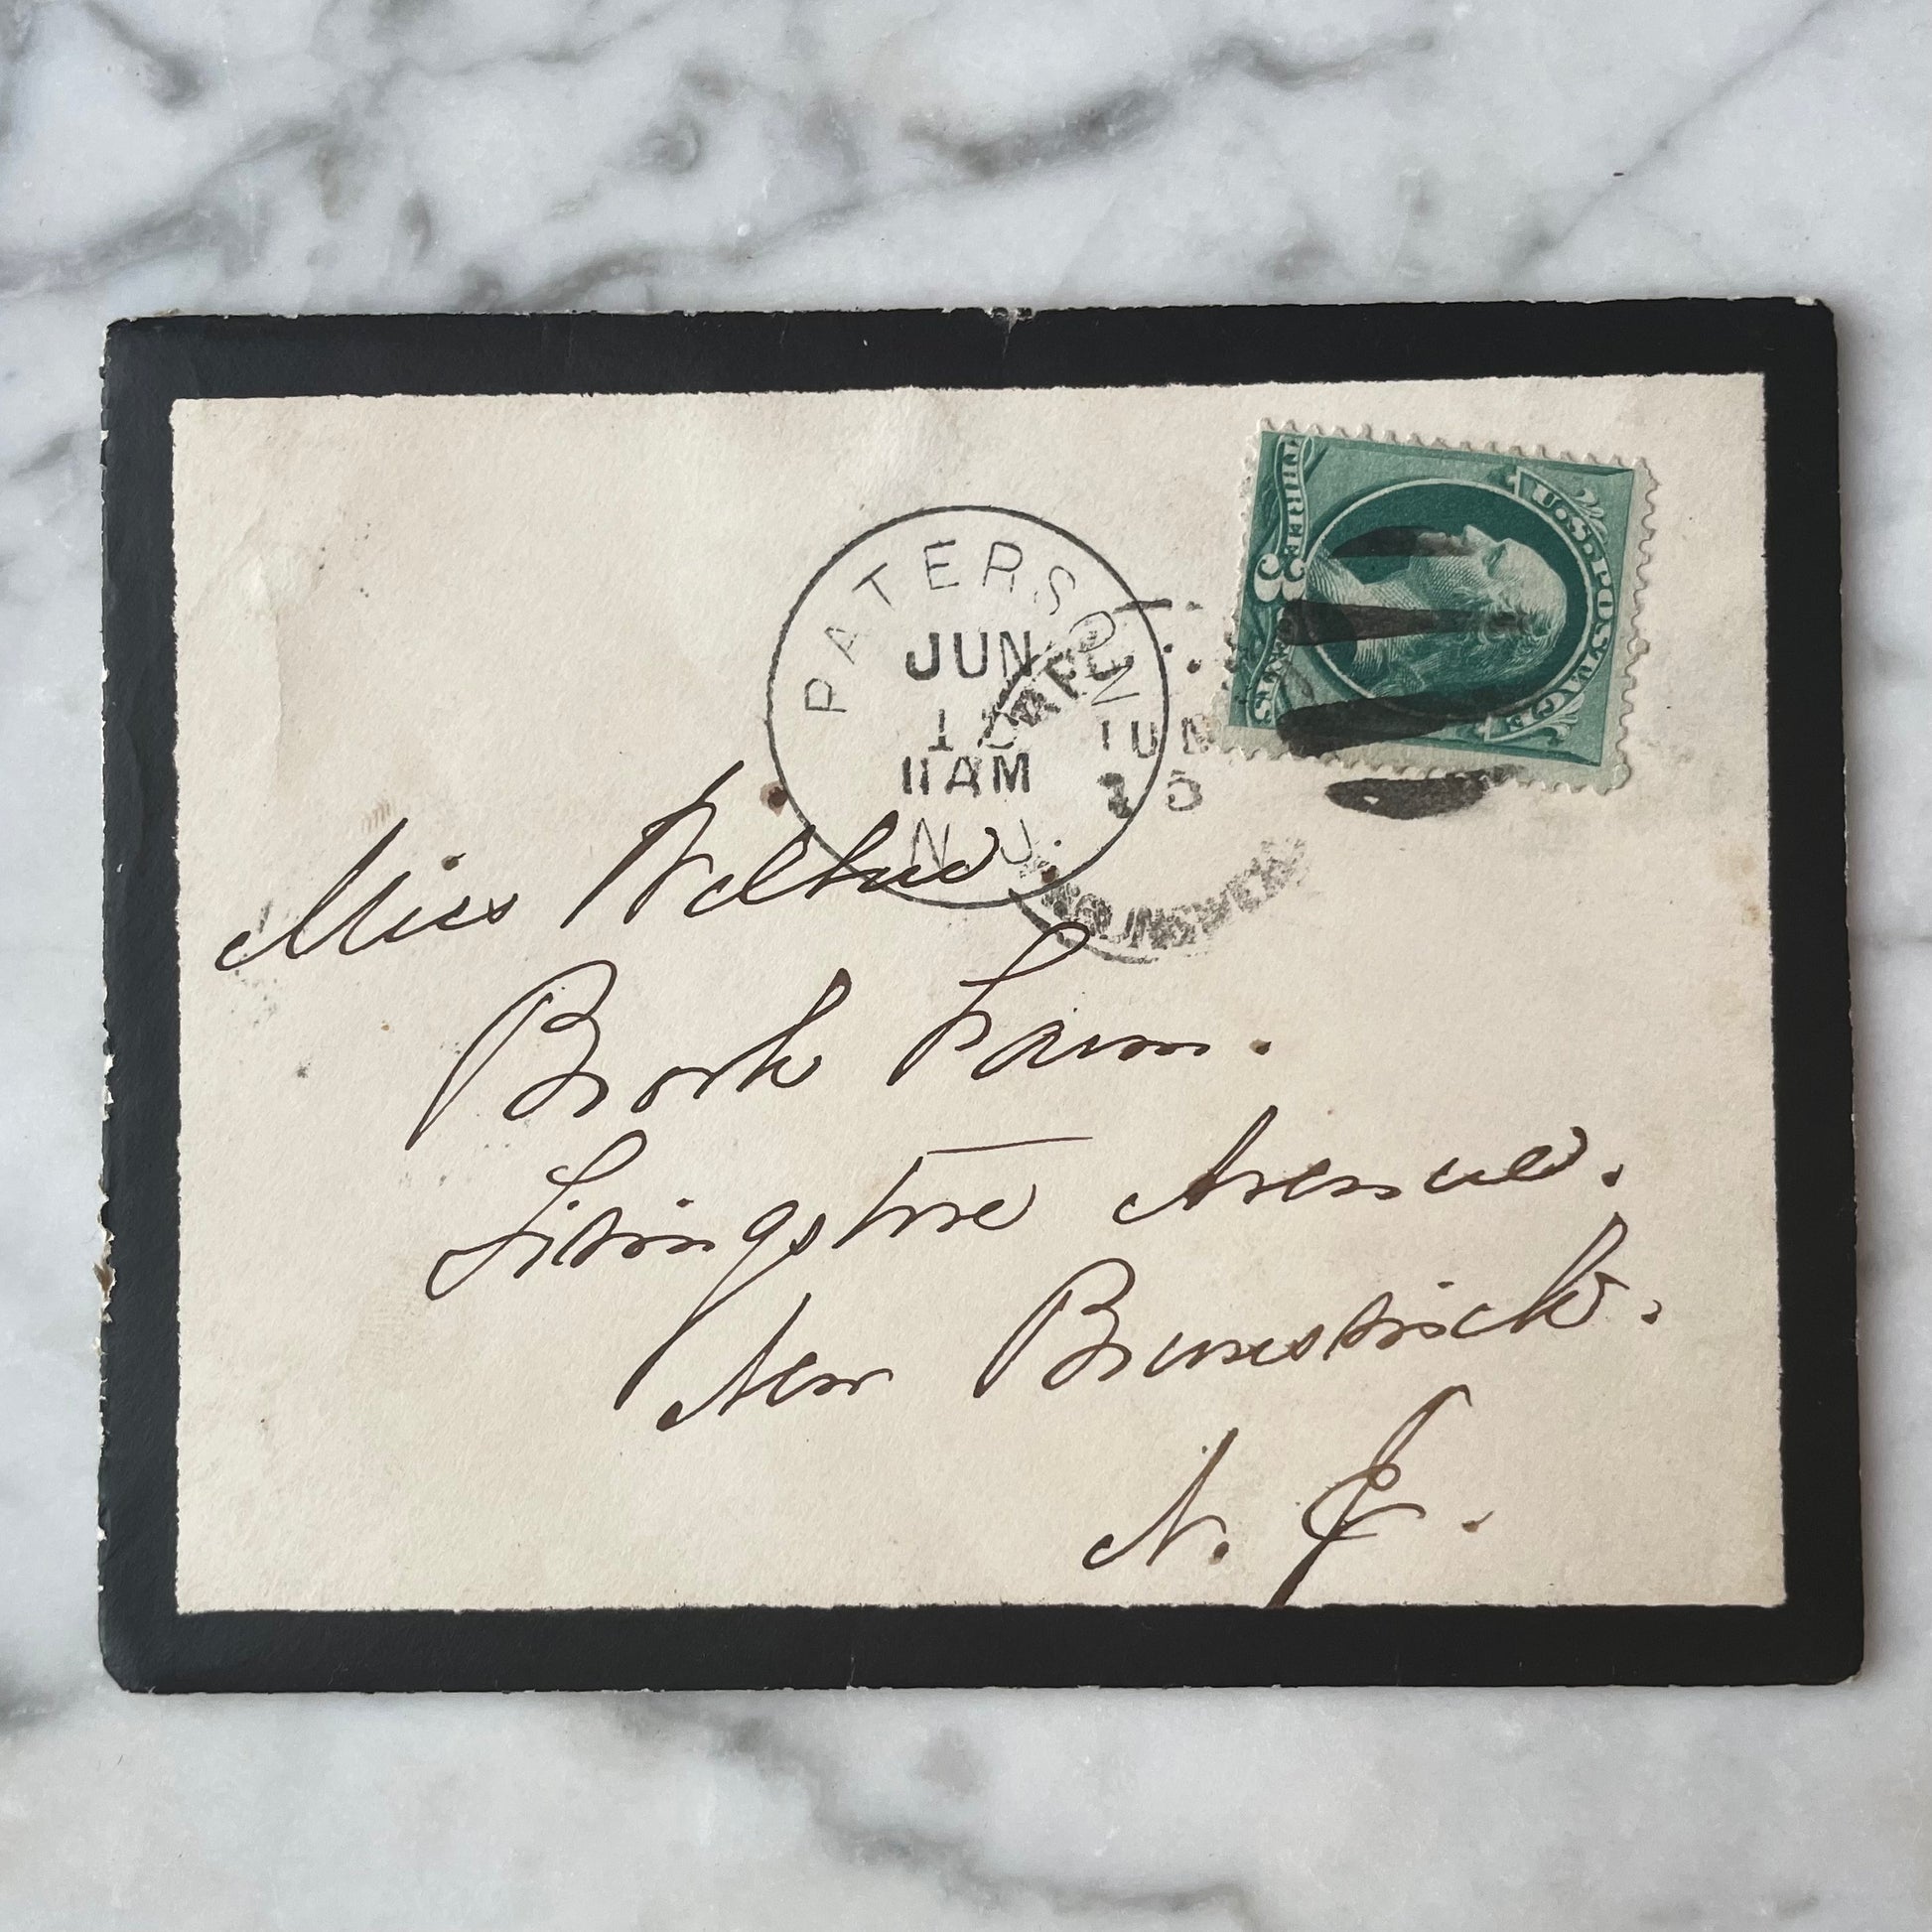 PATERSON
JUN
11 AM
N.J.
JUN
U.S. POSTAGE
THREE 3 CENTS
Miss
Brook Farm.
Livingstone Avenue.
New Brunswick.
N. J.